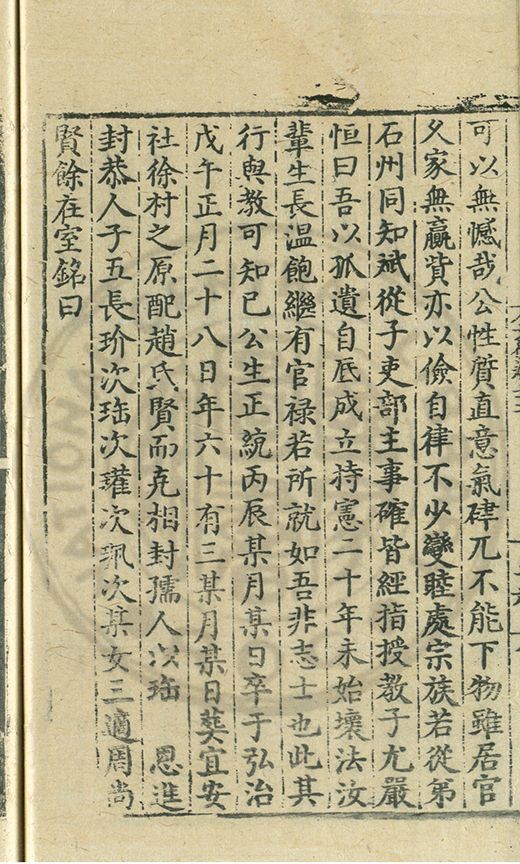 可以無憾哉公性質直意氣硉兀不能下物雖居官
久家無贏貲亦以儉自律不少變睦處宗族若從弟
石州同知斌從子吏部主事確皆經指授教子尤嚴
恒曰吾以孤遺自厎成立持憲二十年未始壞法汝
輩生長温飽繼有官禄若所就如吾非志士也此其
行與教可知已公生正統丙辰某月某日卒于弘治
戊午正月二十八日年六十有三某月某日葬宜安
社徐村之原配趙氏賢而克相封孺人以瑎 恩進
封恭人子五長玠次瑎次瓘次珮次某女三適周尚
賢餘在室銘曰